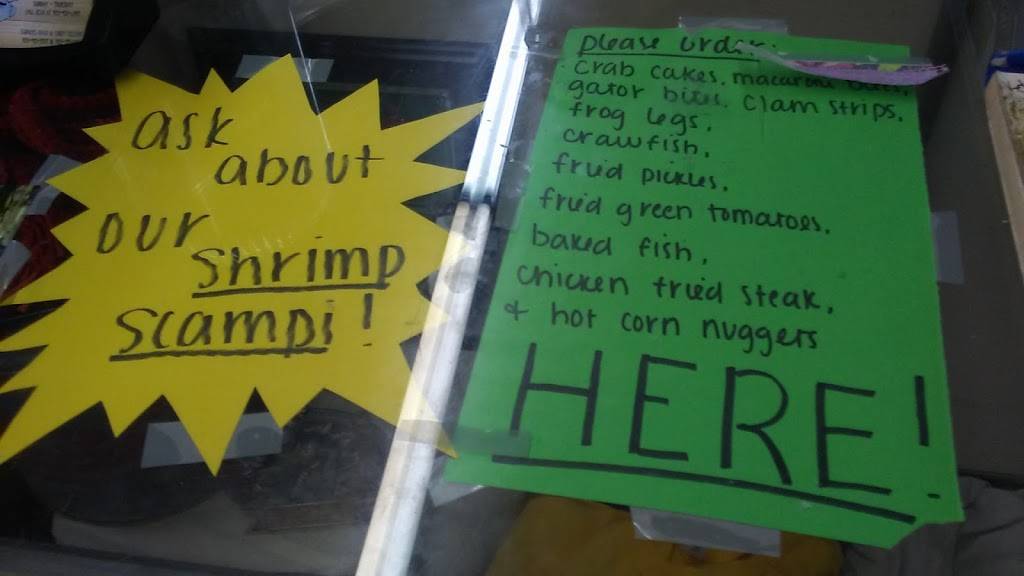 ask
about
our
shrimp
scampi!
please order:
crab cakes, macaroni
gator bites, clam strips,
frog legs,
crawfish,
fried pickles,
fried green tomatoes,
baked fish,
chicken fried steak,
& hot corn nuggers
HERE!